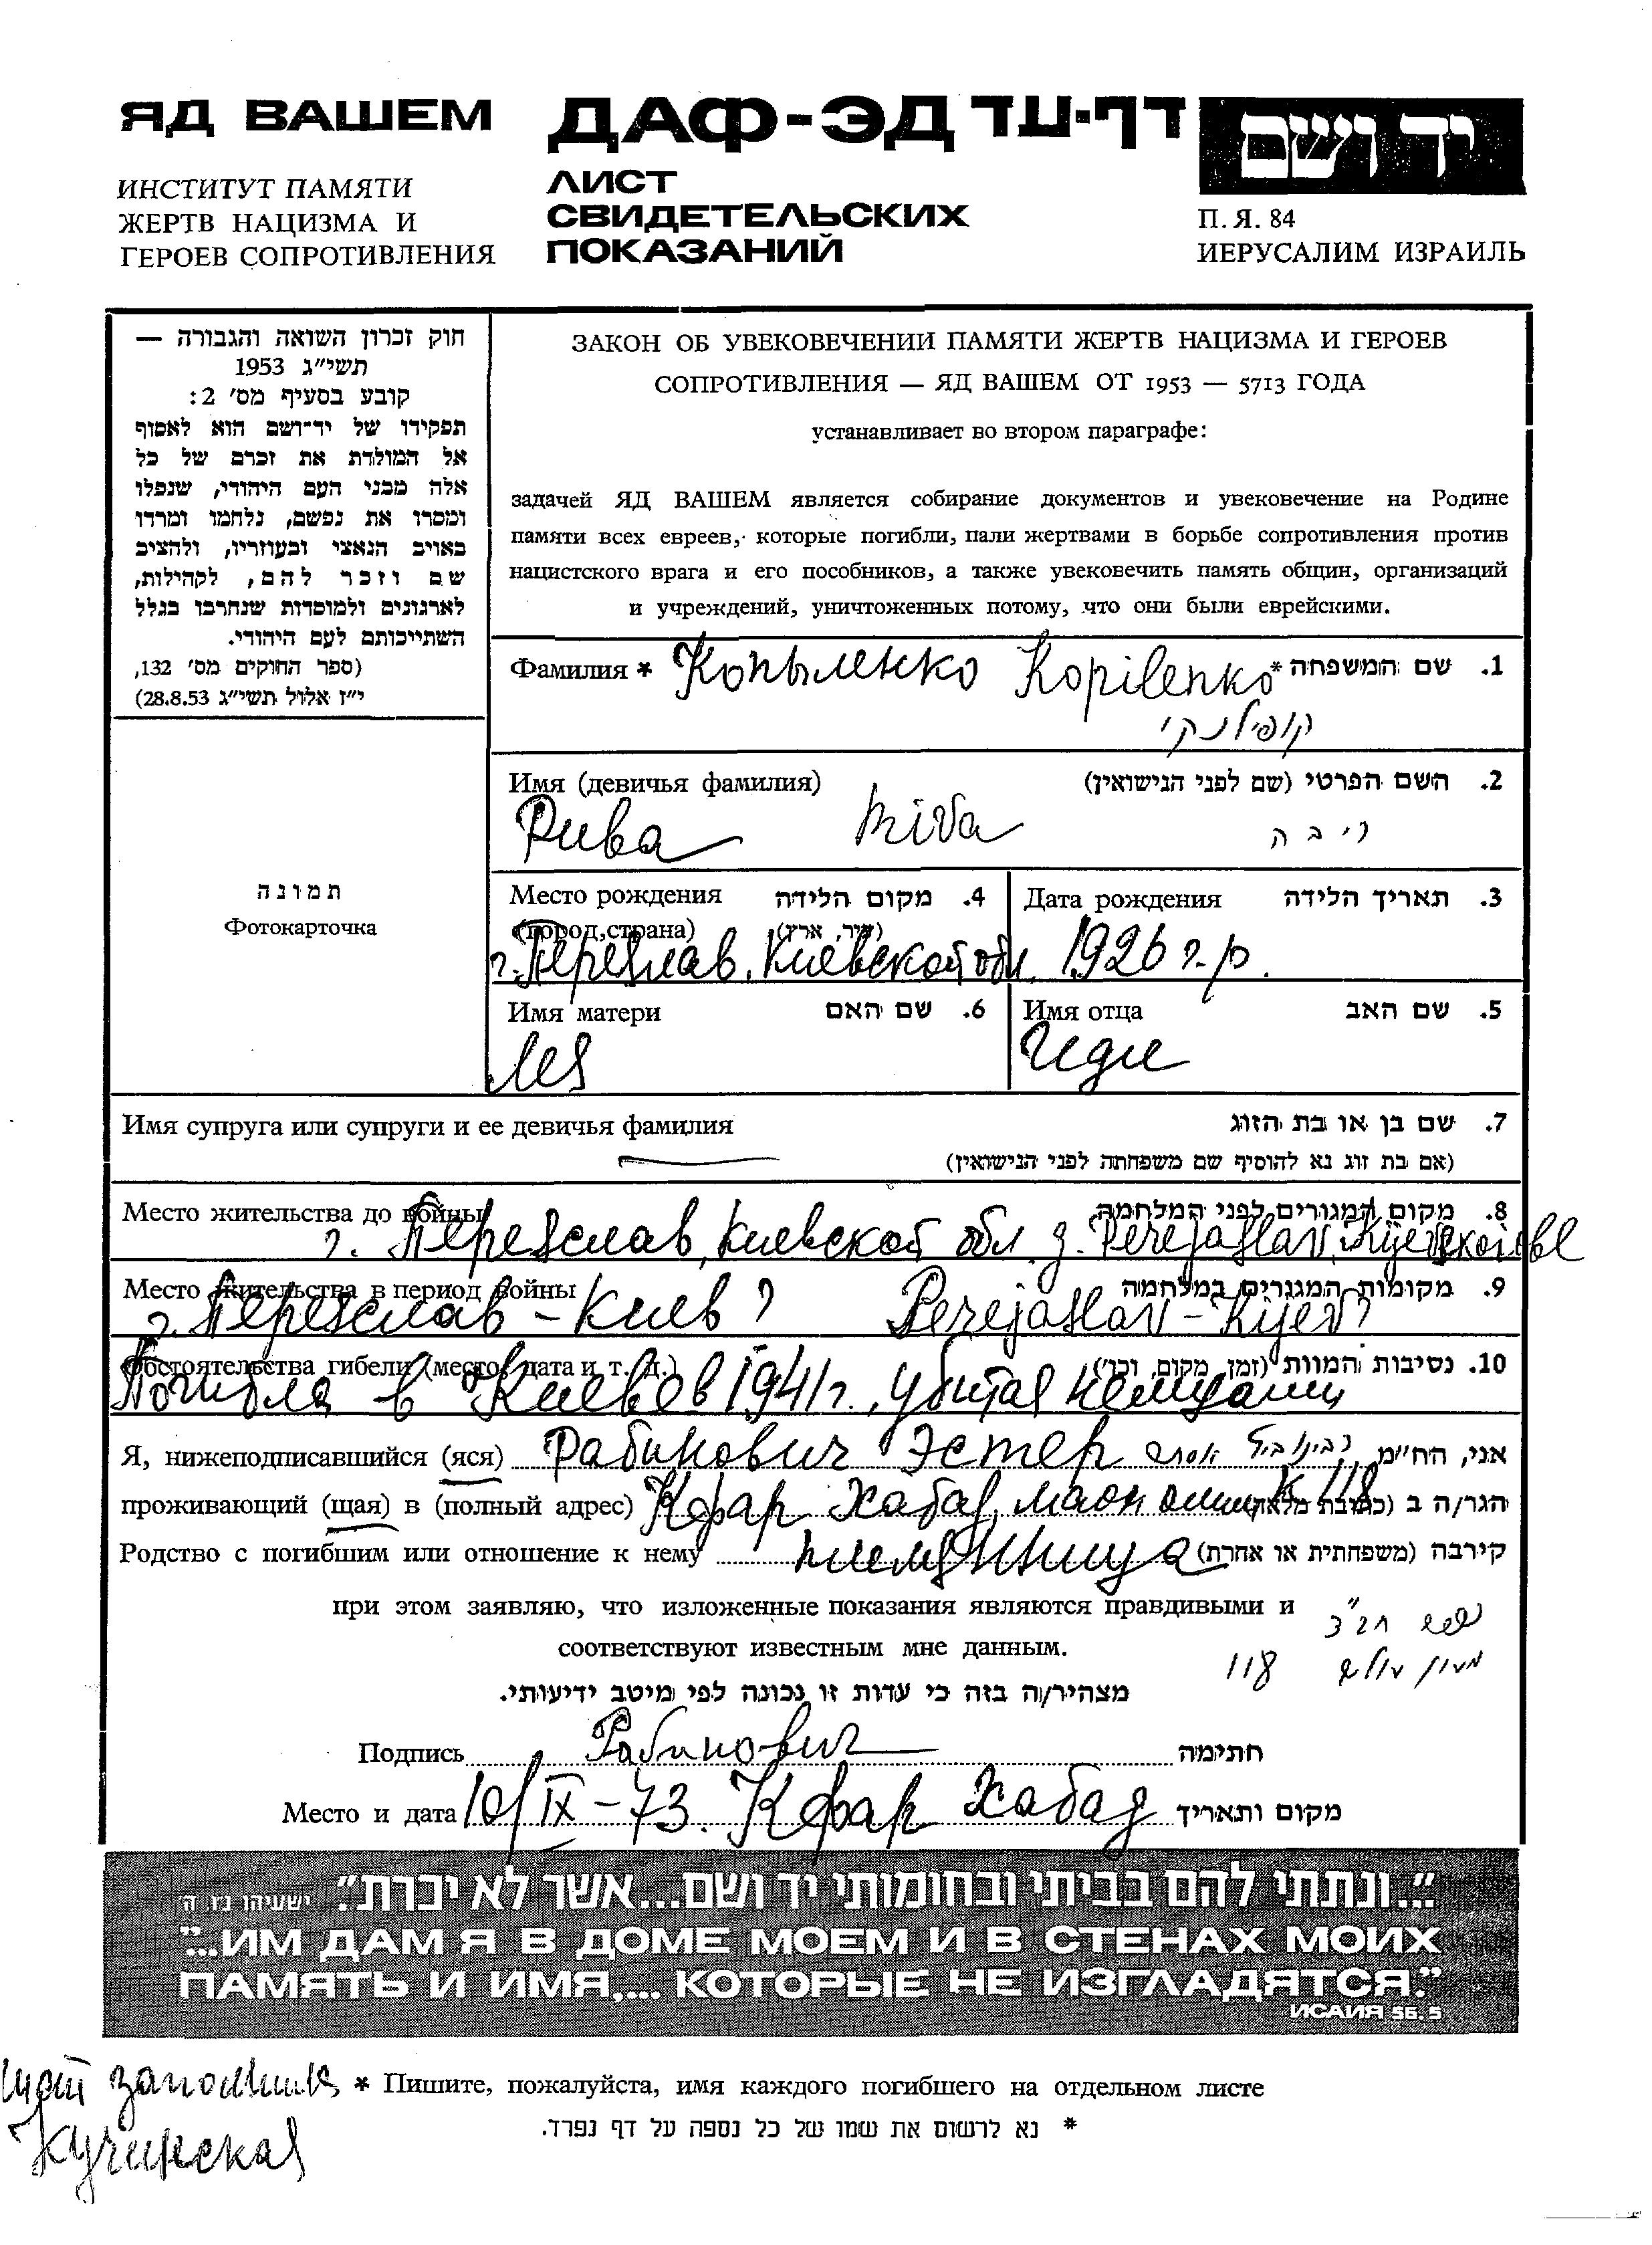 ЯД ВАШЕМ
ИНСТИТУТ ПАМЯТИ
ЖЕРТВ НАЦИЗМА И
ГЕРОЕВ СОПРОТИВЛЕНИЯ
ДАФ-ЭД דף-עד
ЛИСТ
СВИДЕТЕЛЬСКИХ
ПОКАЗАНИЙ
יד ושם
П. Я. 84
ИЕРУСАЛИМ ИЗРАИЛЬ
חוק זכרון השואה והגבורה —
תשי״ג 1953
קובע בסעיף מס׳ 2:
תפקידו של יד־ושם הוא לאסוף
אל המולדת את זכרם של כל
אלה מבני העם היהודי, שנפלו
ומסרו את נפשם, נלחמו ומרדו
באויב הנאצי ובעוזריו, ולהציב
שם וזכר להם, לקהילות,
לארגונים ולמוסדות שנחרבו בגלל
השתייכותם לעם היהודי.
(ספר החוקים מס׳ 132,
י״ז אלול תשי״ג 28.8.53)
תמונה
Фотокарточка
ЗАКОН ОБ УВЕКОВЕЧЕНИИ ПАМЯТИ ЖЕРТВ НАЦИЗМА И ГЕРОЕВ
СОПРОТИВЛЕНИЯ — ЯД ВАШЕМ ОТ 1953 — 5713 ГОДА
устанавливает во втором параграфе:
задачей ЯД ВАШЕМ является собирание документов и увековечение на Родине
памяти всех евреев, которые погибли, пали жертвами в борьбе сопротивления против
нацистского врага и его пособников, а также увековечить память общин, организаций
и учреждений, уничтоженных потому, что они были еврейскими.
Фамилия * Копыленко Kopilenko * שם המשפחה .1
קופילנקו
Имя (девичья фамилия) השם הפרטי (שם לפני הנישואין) .2
Рива Riva ריבה
Место рождения מקום הלידה .4
(город, страна) (עיר, ארץ)
г. Переяслав, Киевской обл.
Дата рождения תאריך הלידה .3
1926 г.р.
Имя матери שם האם .6
Лея
Имя отца שם האב .5
Иди
Имя супруга или супруги и ее девичья фамилия שם בן או בת הזוג .7
(אם בת זוג נא להוסיף שם משפחתה לפני הנישואין)
Место жительства до войны מקום המגורים לפני המלחמה .8
г. Переяслав, Киевской обл. g. Perejaslav,
Место жительства в период войны מקומות המגורים במלחמה .9
г. Переяслав – Киев? Perejaslav – Kijev?
Обстоятельства гибели (место, дата и т. д.) נסיבות המוות (זמן, מקום, וכו׳) .10
Погибла в Киеве в 1941 г., убитая немцами
Я, нижеподписавшийся (яся) Рабинович Эстер רבינוביץ אסתר אני, הח״מ
проживающий (щая) в (полный адрес) Кфар Хабад, маон олим К 118 הגר/ה ב (כתובת מלאה)
Родство с погибшим или отношение к нему племянница קירבה (משפחתית או אחרת)
при этом заявляю, что изложенные показания являются правдивыми и
соответствуют известным мне данным.
כפר חב״ד
מעון עולים 118
מצהיר/ה בזה כי עדות זו נכונה לפי מיטב ידיעותי.
Подпись Рабинович חתימה
Место и дата 10/IX – 73. Кфар Хабад מקום ותאריך
״...ונתתי להם בביתי ובחומותי יד ושם...אשר לא יכרת״. ישעיהו נו ה׳
"...ИМ ДАМ Я В ДОМЕ МОЕМ И В СТЕНАХ МОИХ
ПАМЯТЬ И ИМЯ.... КОТОРЫЕ НЕ ИЗГЛАДЯТСЯ."
ИСАИЯ 56. 5
заполнила
Кучинская
* Пишите, пожалуйста, имя каждого погибшего на отдельном листе
* נא לרשום את שמו של כל נספה על דף נפרד.